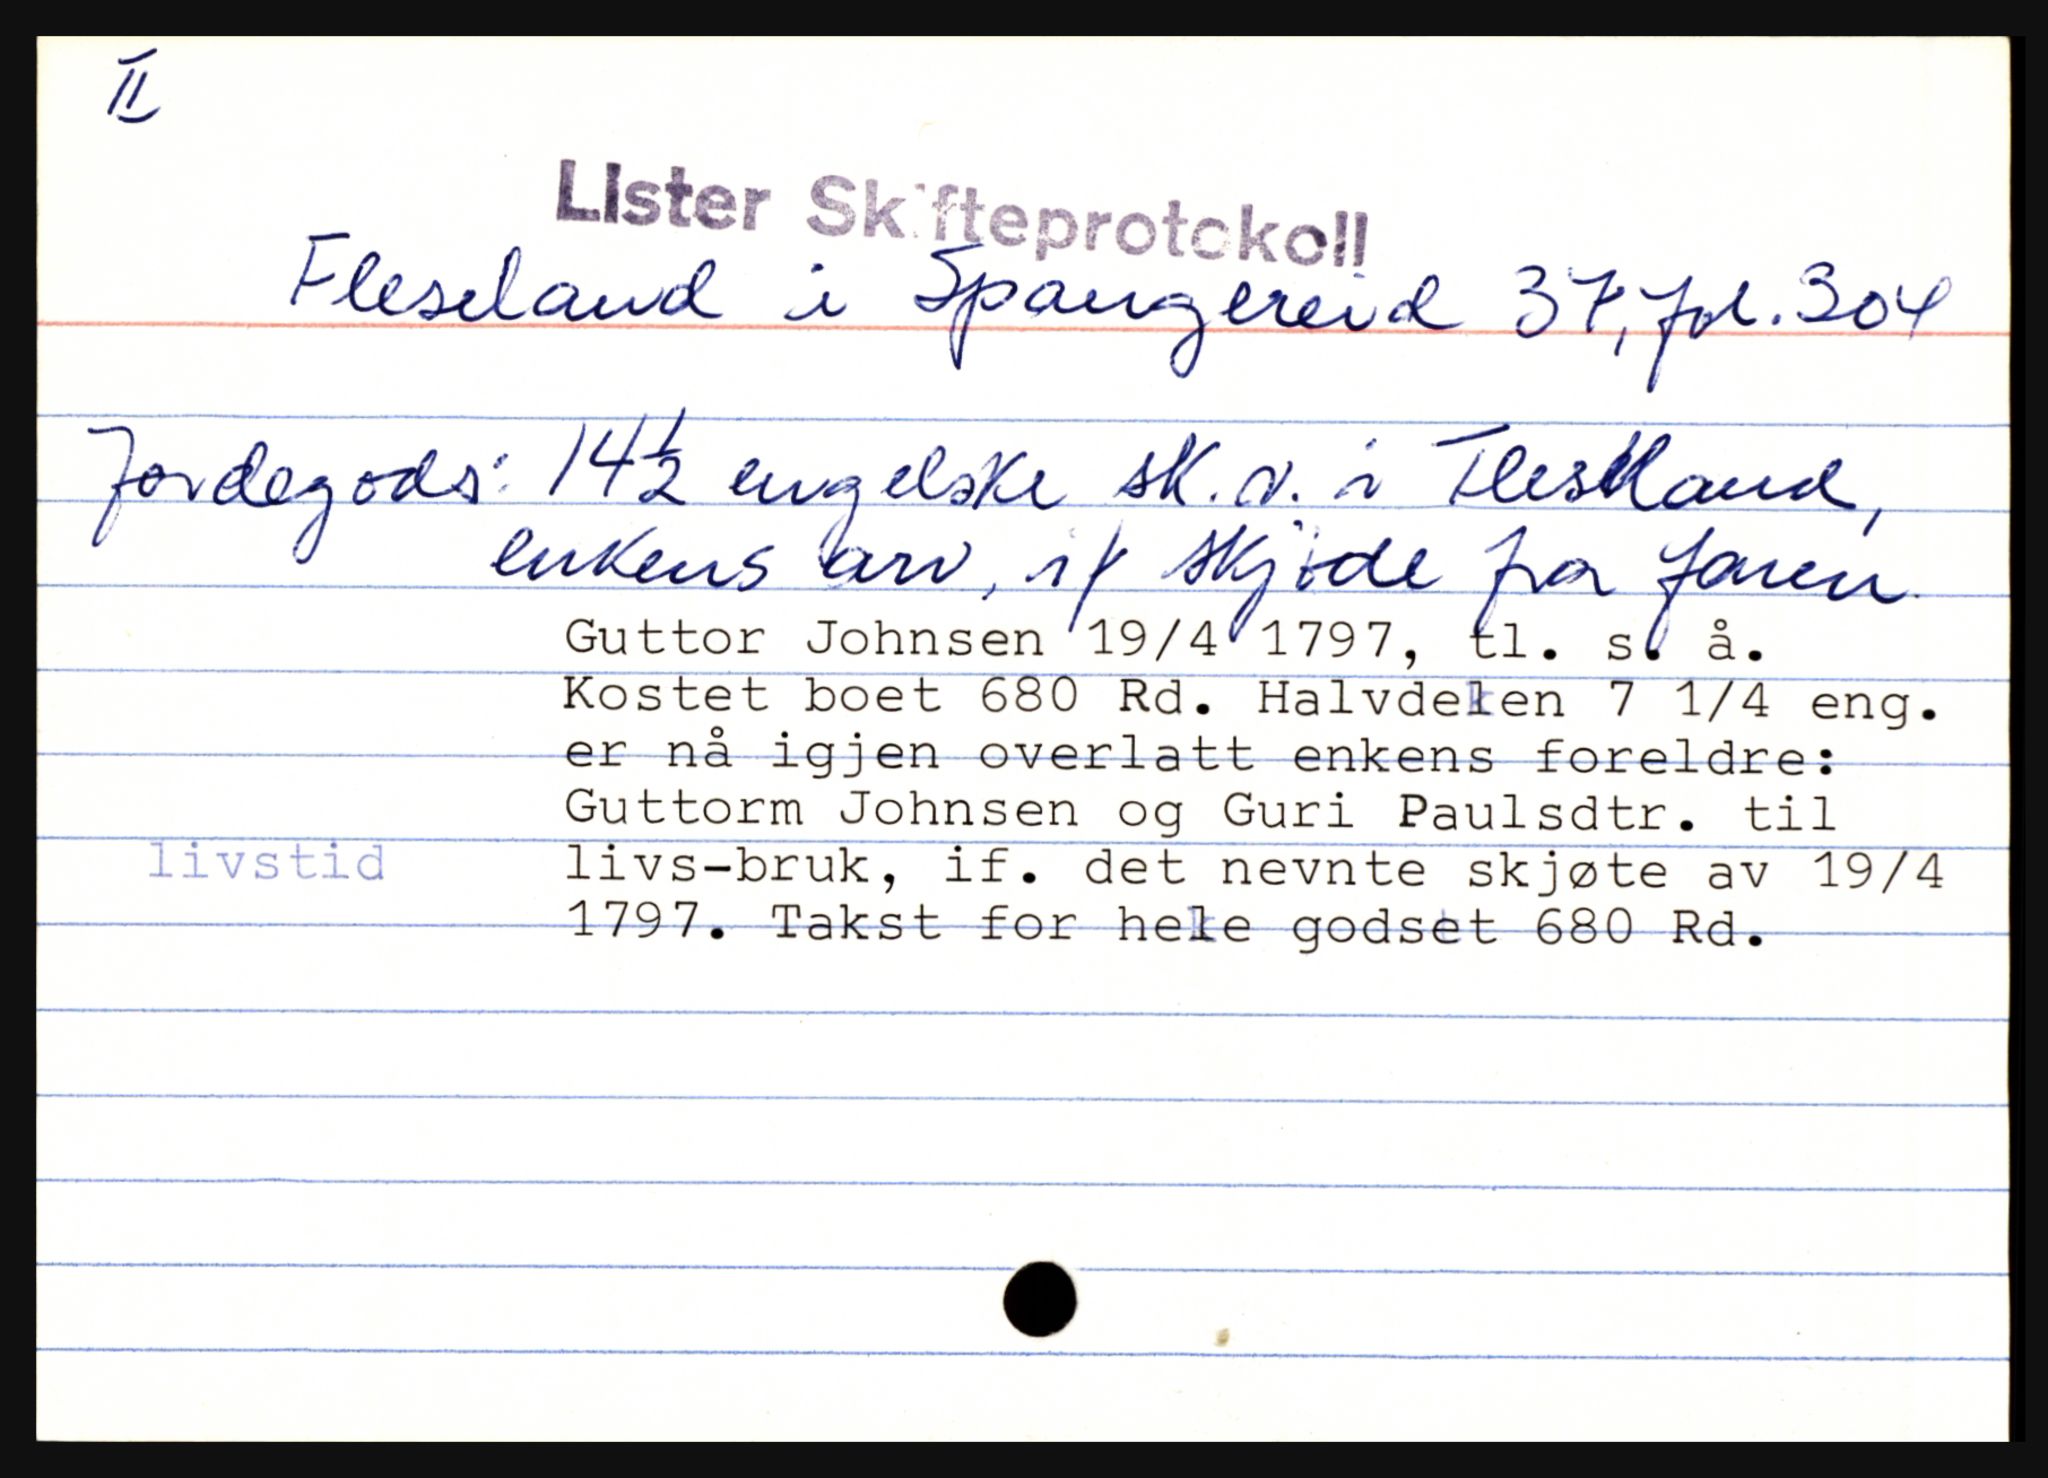 II
Lister Skifteprotokoll
Fleseland i Spangereid 37, fol. 304
Jordegods: 14½ engelske sk. v. i Fleseland,
enkens arv, if skjöde fra faren
Guttor Johnsen 19/4 1797, tl. s. å.
Kostet boet 680 Rd. Halvdelen 7 1/4 eng.
er nå igjen overlatt enkens foreldre:
Guttorm Johnsen og Guri Paulsdtr. til
livstid livs-bruk, if. det nevnte skjøte av 19/4
1797. Takst for hele godset 680 Rd.